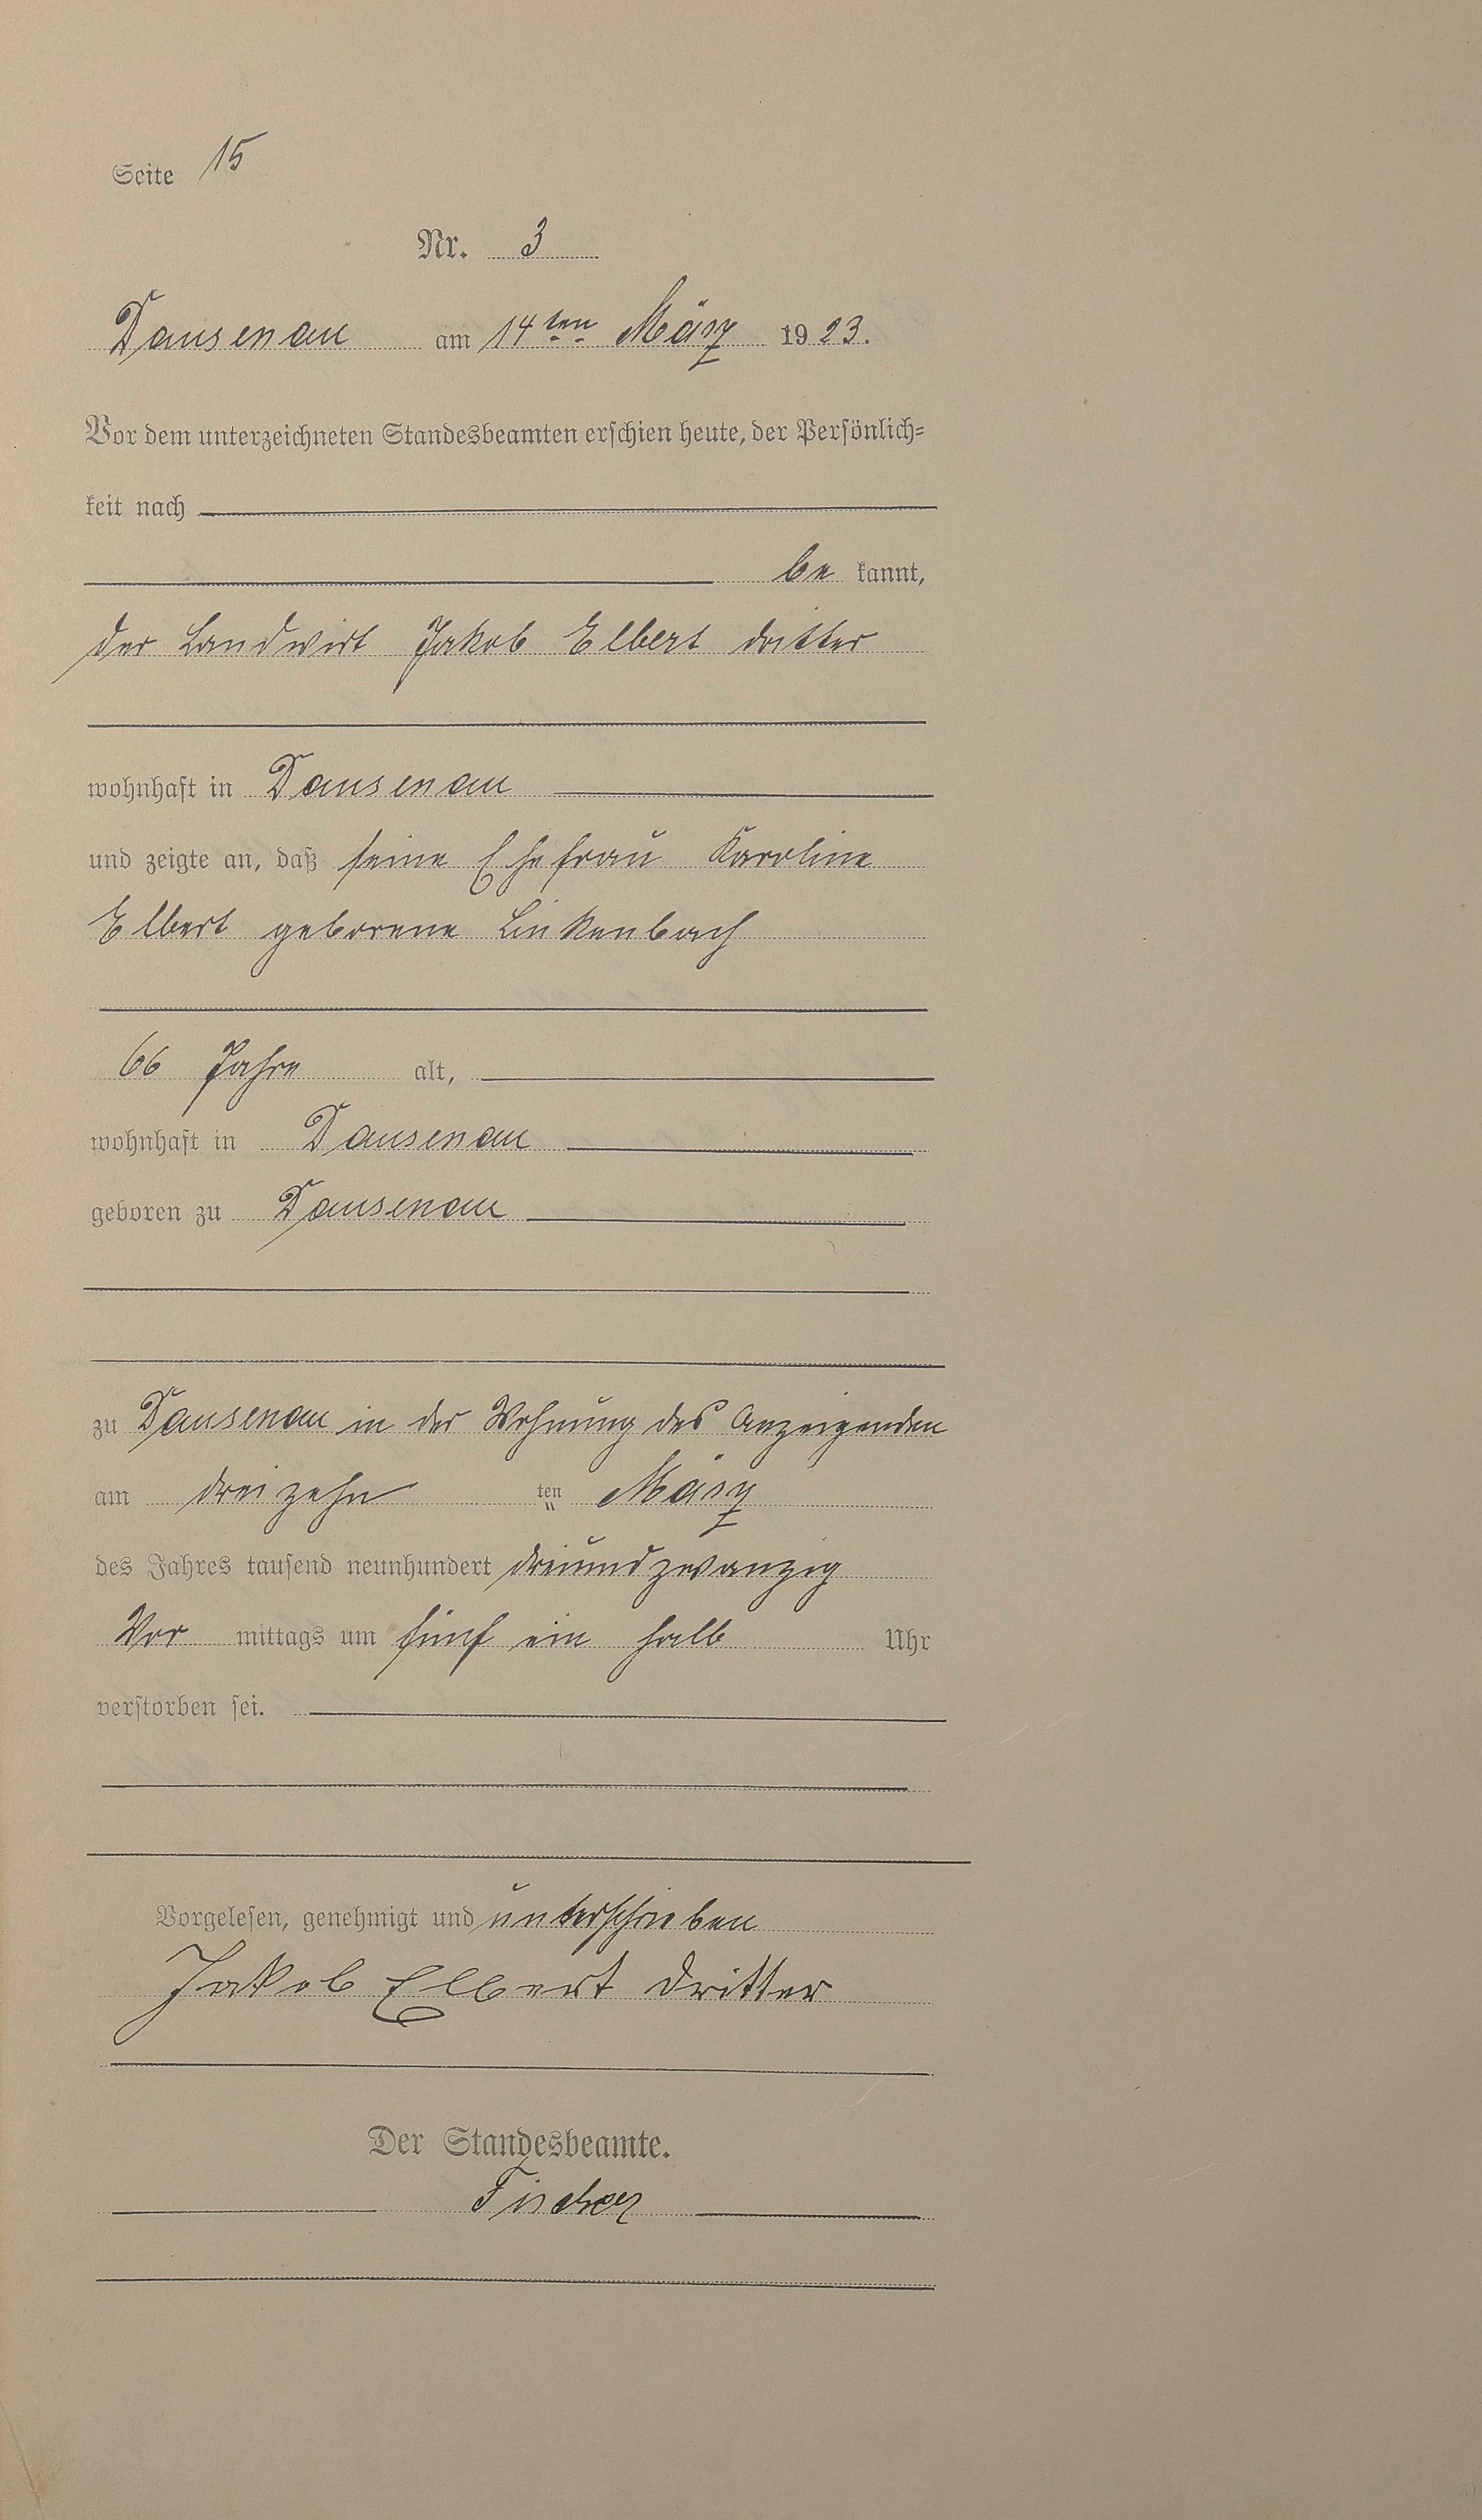 Seite 15
Nr. 3
Dausenau am 14ten März 1923.
Vor dem unterzeichneten Standesbeamten erschien heute, der Persönlich-
keit nach
be kannt,
der Landwirt Jakob Elbert dritter
wohnhaft in Dausenau
und zeigte an, daß seine Ehefrau Karoline
Elbert geborene Linkenbach
66 Jahre alt,
wohnhaft in Dausenau
geboren zu Dausenau
zu Dausenau in der Wohnung des Anzeigenden
am dreizehn ten März
des Jahres tausend neunhundert dreiundzwanzig
Vor mittags um fünf ein halb Uhr
verstorben sei.
Vorgelesen, genehmigt und unterschrieben
Jakob Elbert dritter
Der Standesbeamte.
Fischer